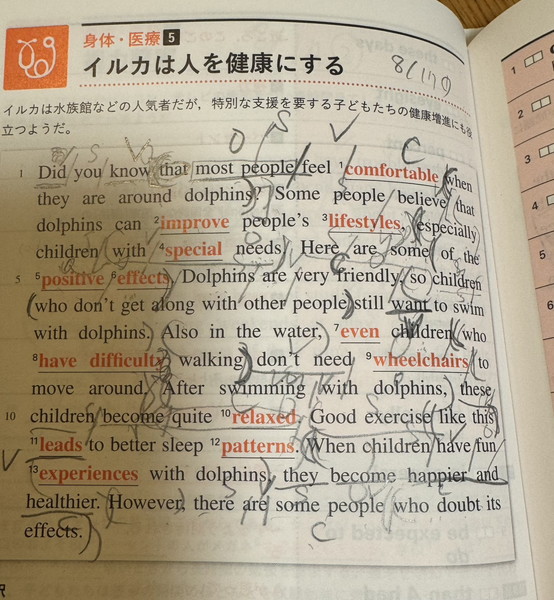 身体・医療 5
イルカは人を健康にする
イルカは水族館などの人気者だが，特別な支援を要する子どもたちの健康増進にも役
立つようだ。
1 Did you know that most people feel 1comfortable when
they are around dolphins? Some people believe that
dolphins can 2improve people's 3lifestyles, especially
children with 4special needs. Here are some of the
5 5positive 6effects. Dolphins are very friendly, so children
who don't get along with other people still want to swim
with dolphins. Also in the water, 7even children who
8have difficulty walking don't need 9wheelchairs to
move around. After swimming with dolphins, these
10 children become quite 10relaxed. Good exercise like this
11leads to better sleep 12patterns. When children have fun
13experiences with dolphins, they become happier and
healthier. However, there are some people who doubt its
effects.
訳
1
2
3
4
5
6